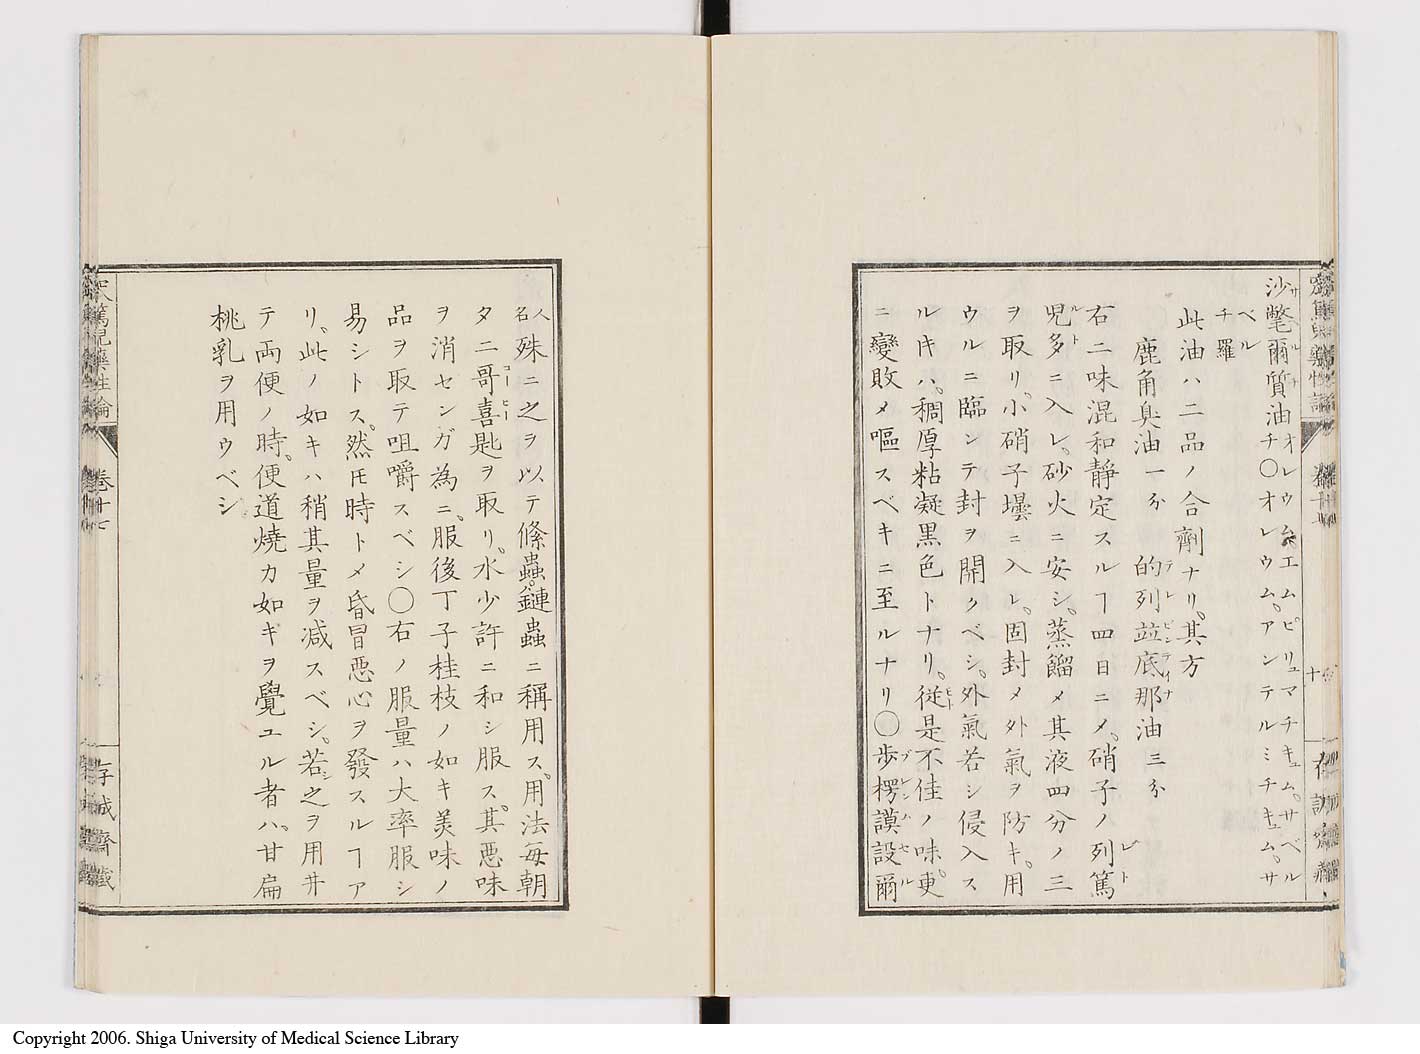 沙氅爾質油 オレウム、エムピリュマチキュム。サベル
チ〇オレウム。アンテルミチキュム。サ
ベル
チ羅
此油ハ二品ノ合劑ナリ。其方
鹿角臭油一分 的列竝底那油三分
右二味混和靜定スルヿ四日ニメ。硝子ノ列篤
兒多ニ入レ。砂火ニ安シ。蒸餾メ其液四分ノ三
ヲ取リ。小硝子壜ニ入レ。固封メ外氣ヲ防キ。用
ウルニ臨ンテ封ヲ開クベシ。外氣若シ侵入ス
ルキハ。稠厚粘凝黒色トナリ。従是不佳ノ味更
ニ變敗メ嘔スベキニ至ルナリ〇歩楞謨設爾
人名 殊ニ之ヲ以テ絛蟲。鏈蟲ニ稱用ス。用法毎朝
タニ哥喜匙ヲ取リ。水少許ニ和シ服ス。其悪味
ヲ消センガ為ニ。服後丁子桂枝ノ如キ美味ノ
品ヲ取テ咀嚼スベシ〇右ノ服量ハ大率服シ
易シトス。然𪜈時トメ昏冒悪心ヲ發スルヿア
リ。此ノ如キハ稍其量ヲ減スベシ。若シ之ヲ用井
テ両便ノ時。便道焼カ如キヲ覺ユル者ハ。甘扁
桃乳ヲ用ウベシ
篤兒藥性論 卷十七 存誠齋藏
Copyright 2006. Shiga University of Medical Science Library